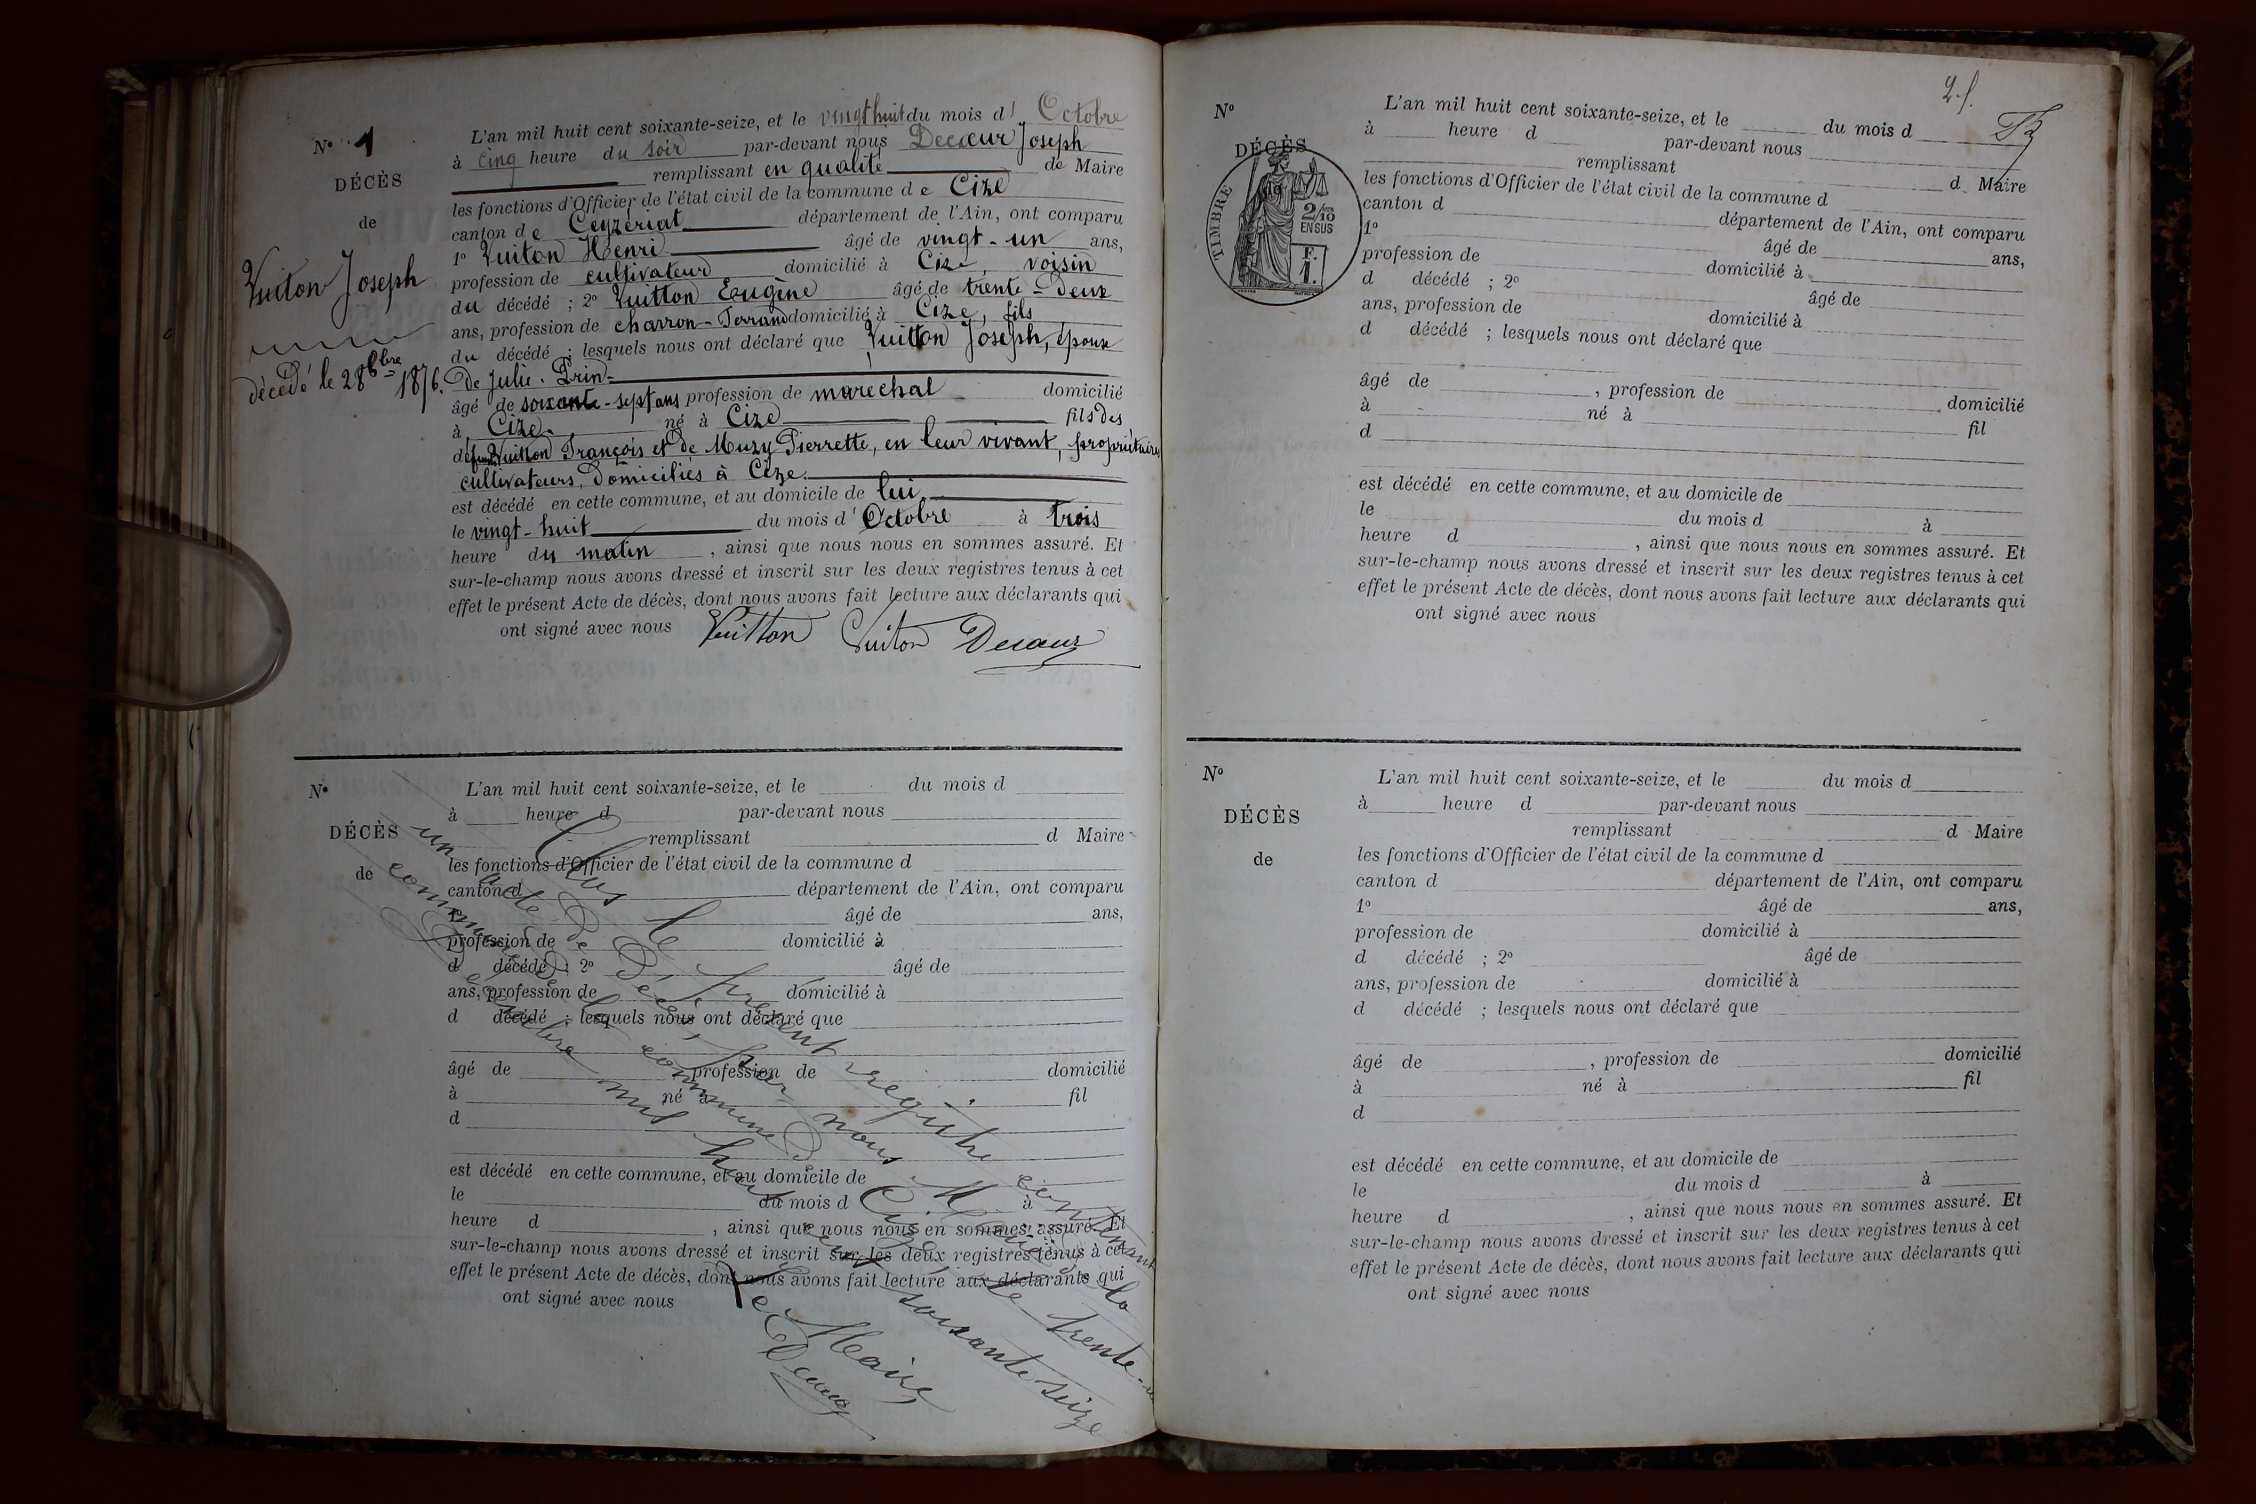 N° 1
DÉCÈS
de
Vuiton Joseph
décédé le 28 8bre 1876.
L'an mil huit cent soixante-seize, et le vingt huit du mois d' Octobre
à Cinq heure du soir par-devant nous Decœur Joseph
remplissant en qualité de Maire
les fonctions d'Officier de l'état civil de la commune de Cize
canton de Ceyzériat département de l'Ain, ont comparu
1° Vuiton Henri âgé de vingt-un ans,
profession de cultivateur domicilié à Cize, voisin
du décédé ; 2° Vuitton Eugène âgé de trente-Deux
ans, profession de charron-Ferrand domicilié à Cize, fils
du décédé ; lesquels nous ont déclaré que Vuitton Joseph, époux
de Julie Prin
âgé de soixante-sept ans profession de maréchal domicilié
à Cize né à Cize fils des
défunts Vuitton François et de Muzy Pierrette, en leur vivant, propriétaires
cultivateurs, Domiciliés à Cize
est décédé en cette commune, et au domicile de lui
le vingt-huit du mois d'Octobre à trois
heure du matin , ainsi que nous nous en sommes assuré. Et
sur-le-champ nous avons dressé et inscrit sur les deux registres tenus à cet
effet le présent Acte de décès, dont nous avons fait lecture aux déclarants qui
ont signé avec nous Vuitton Vuiton Decœur
N°
DÉCÈS
de
L'an mil huit cent soixante-seize, et le du mois d
à heure d par-devant nous
remplissant d Maire
les fonctions d'Officier de l'état civil de la commune d
canton d département de l'Ain, ont comparu
1° âgé de ans,
profession de domicilié à
d décédé ; 2° âgé de
ans, profession de domicilié à
d décédé ; lesquels nous ont déclaré que
âgé de profession de domicilié
à né à fil
d
est décédé en cette commune, et au domicile de
le du mois d à
heure d , ainsi que nous nous en sommes assuré. Et
sur-le-champ nous avons dressé et inscrit sur les deux registres tenus à cet
effet le présent Acte de décès, dont nous avons fait lecture aux déclarants qui
ont signé avec nous
Clos le présent registre contenant
un acte de Décès, par nous Maire de la
commune de la commune de Cize, le trente-un
Décembre mil huit cent soixante seize
Le Maire
Decœur
2. f.
N°
DÉCÈS
TIMBRE
2/10
EN SUS
F.
1.
L'an mil huit cent soixante-seize, et le du mois d
à heure d par-devant nous
remplissant d Maire
les fonctions d'Officier de l'état civil de la commune d
canton d département de l'Ain, ont comparu
1° âgé de ans,
profession de domicilié à
d décédé ; 2° âgé de
ans, profession de domicilié à
d décédé ; lesquels nous ont déclaré que
âgé de , profession de domicilié
à né à fil
d
est décédé en cette commune, et au domicile de
le du mois d à
heure d , ainsi que nous nous en sommes assuré. Et
sur-le-champ nous avons dressé et inscrit sur les deux registres tenus à cet
effet le présent Acte de décès, dont nous avons fait lecture aux déclarants qui
ont signé avec nous
N°
DÉCÈS
de
L'an mil huit cent soixante-seize, et le du mois d
à heure d par-devant nous
remplissant d Maire
les fonctions d'Officier de l'état civil de la commune d
canton d département de l'Ain, ont comparu
1° âgé de ans,
profession de domicilié à
d décédé ; 2° âgé de
ans, profession de domicilié à
d décédé ; lesquels nous ont déclaré que
âgé de , profession de domicilié
à né à fil
d
est décédé en cette commune, et au domicile de
le du mois d à
heure d , ainsi que nous nous en sommes assuré. Et
sur-le-champ nous avons dressé et inscrit sur les deux registres tenus à cet
effet le présent Acte de décès, dont nous avons fait lecture aux déclarants qui
ont signé avec nous